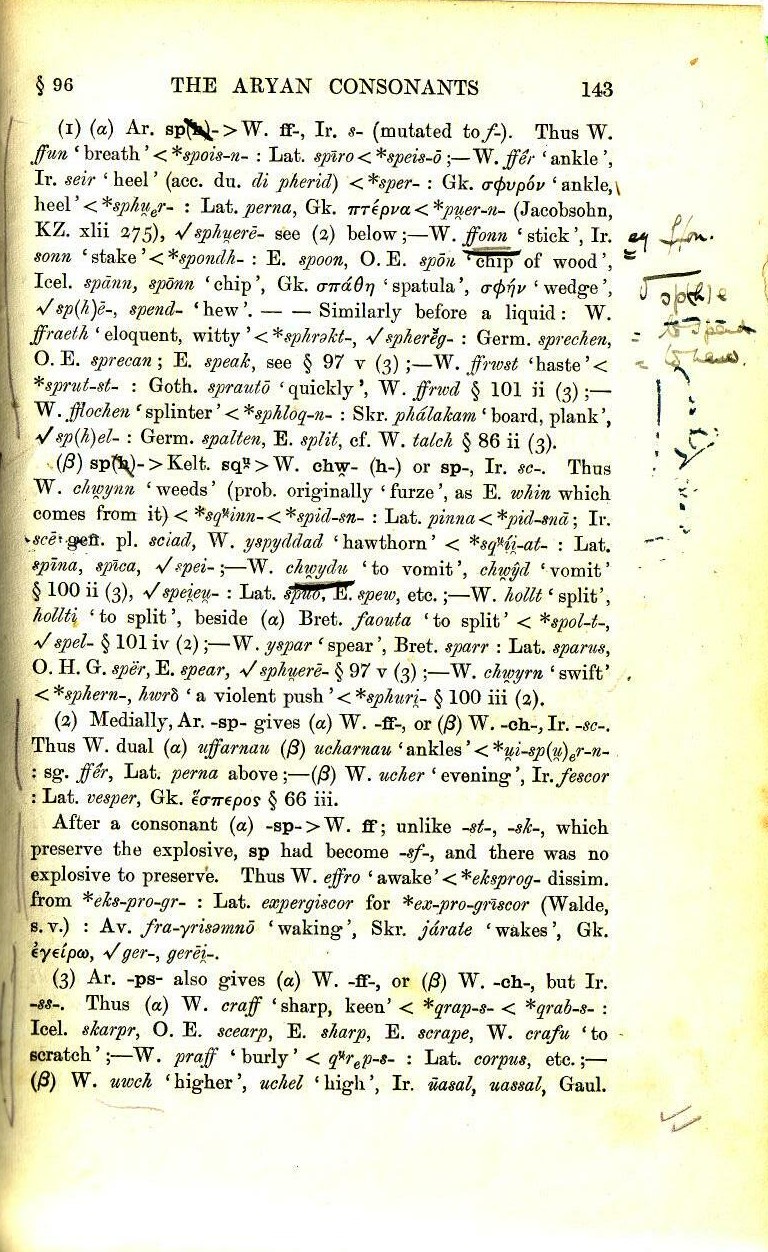 § 96 THE ARYAN CONSONANTS 143
(1) (α) Ar. sp(h)- > W. ff-, Ir. s- (mutated to f-). Thus W.
ffun ‘breath’ < *spois-n- : Lat. spīro < *speis-ō ;—W. ffêr ‘ankle’,
Ir. seir ‘heel’ (acc. du. di pherid) < *sper- : Gk. σφυρόν ‘ankle,
heel’ < *sphu̯ₑr- : Lat. perna, Gk. πτέρνα < *pu̯er-n- (Jacobsohn,
KZ. xlii 275), √sphu̯erē- see (2) below ;—W. ffonn ‘stick’, Ir.
sonn ‘stake’ < *spondh- : E. spoon, O. E. spōn ‘chip of wood’,
Icel. spānn, spōnn ‘chip’, Gk. σπάθη ‘spatula’, σφήν ‘wedge’,
√sp(h)ē-, spend- ‘hew’. — — Similarly before a liquid : W.
ffraeth ‘eloquent, witty’ < *sphrəkt-, √spherēg- : Germ. sprechen,
O. E. sprecan ; E. speak, see § 97 v (3) ;—W. ffrwst ‘haste’ <
*sprut-st- : Goth. sprautō ‘quickly’, W. ffrwd § 101 ii (3) ;—
W. fflochen ‘splinter’ < *sphloq-n- : Skr. phálakam ‘board, plank’,
√sp(h)el- : Germ. spalten, E. split, cf. W. talch § 86 ii (3).
(β) sp(h)- > Kelt. sqᵘ̯ > W. chw̯- (h-) or sp-, Ir. sc-. Thus
W. chw̯ynn ‘weeds’ (prob. originally ‘furze’, as E. whin which
comes from it) < *sqᵘ̯inn- < *spid-sn- : Lat. pinna < *pid-snā ; Ir.
scē gen. pl. sciad, W. yspyddad ‘hawthorn’ < *sqᵘ̯ii̯-at- : Lat.
spīna, spīca, √spei- ;—W. chw̯ydu ‘to vomit’, chw̯ŷd ‘vomit’
§ 100 ii (3), √spei̯eu̯- : Lat. spuo, E. spew, etc. ;—W. hollt ‘split’,
hollti ‘to split’, beside (α) Bret. faouta ‘to split’ < *spol-t-,
√spel- § 101 iv (2) ;—W. yspar ‘spear’, Bret. sparr : Lat. sparus,
O. H. G. spër, E. spear, √sphu̯erē- § 97 v (3) ;—W. chw̯yrn ‘swift’
< *sphern-, hwrδ ‘a violent push’ < *sphuri̯- § 100 iii (2).
(2) Medially, Ar. -sp- gives (α) W. -ff-, or (β) W. -ch-, Ir. -sc-.
Thus W. dual (α) uffarnau (β) ucharnau ‘ankles’ < *u̯i-sp(u̯)ₑr-n-
: sg. ffêr, Lat. perna above ;—(β) W. ucher ‘evening’, Ir. fescor
: Lat. vesper, Gk. ἕσπερος § 66 iii.
After a consonant (α) -sp- > W. ff ; unlike -st-, -sk-, which
preserve the explosive, sp had become -sf-, and there was no
explosive to preserve. Thus W. effro ‘awake’ < *eksprog- dissim.
from *eks-pro-gr- : Lat. expergiscor for *ex-pro-grīscor (Walde,
s. v.) : Av. fra-γrisəmnō ‘waking’, Skr. járate ‘wakes’, Gk.
ἐγείρω, √ger-, gerēi̯-.
(3) Ar. -ps- also gives (α) W. -ff-, or (β) W. -ch-, but Ir.
-ss-. Thus (α) W. craff ‘sharp, keen’ < *qrap-s- < *qrab-s- :
Icel. skarpr, O. E. scearp, E. sharp, E. scrape, W. crafu ‘to
scratch’ ;—W. praff ‘burly’ < qᵘ̯rₑp-s- : Lat. corpus, etc. ;—
(β) W. uwch ‘higher’, uchel ‘high’, Ir. ūasal, uassal, Gaul.
eg ffon.
√sp(h)e
= to hew.